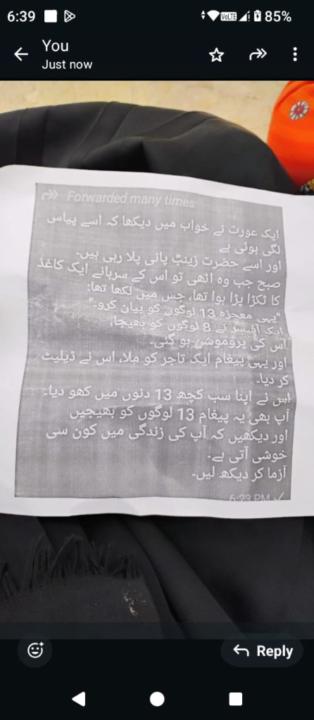 6:39
85%
You
Just now
Forwarded many times
ایک عورت نے خواب میں دیکھا کہ اسے پیاس
لگی ہوئی ہے
اور اسے حضرت زینبؑ پانی پلا رہی ہیں۔
صبح جب وہ اٹھی تو اس کے سرہانے ایک کاغذ
کا ٹکڑا پڑا ہوا تھا، جس میں لکھا تھا:
"یہی معجزہ 13 لوگوں کو بیان کرو۔"
ایک آفیسر نے 8 لوگوں کو بھیجا،
اس کی پروموشن ہو گئی۔
اور یہی پیغام ایک تاجر کو ملا، اس نے ڈیلیٹ
کر دیا۔
اس نے اپنا سب کچھ 13 دنوں میں کھو دیا۔
آپ بھی یہ پیغام 13 لوگوں کو بھیجیں
اور دیکھیں کہ آپ کی زندگی میں کون سی
خوشی آتی ہے۔
آزما کر دیکھ لیں۔
6:23 PM
Reply